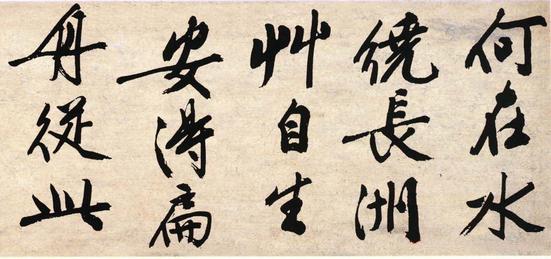 何在水
繞長洲
艸自生
安得扁
舟從此